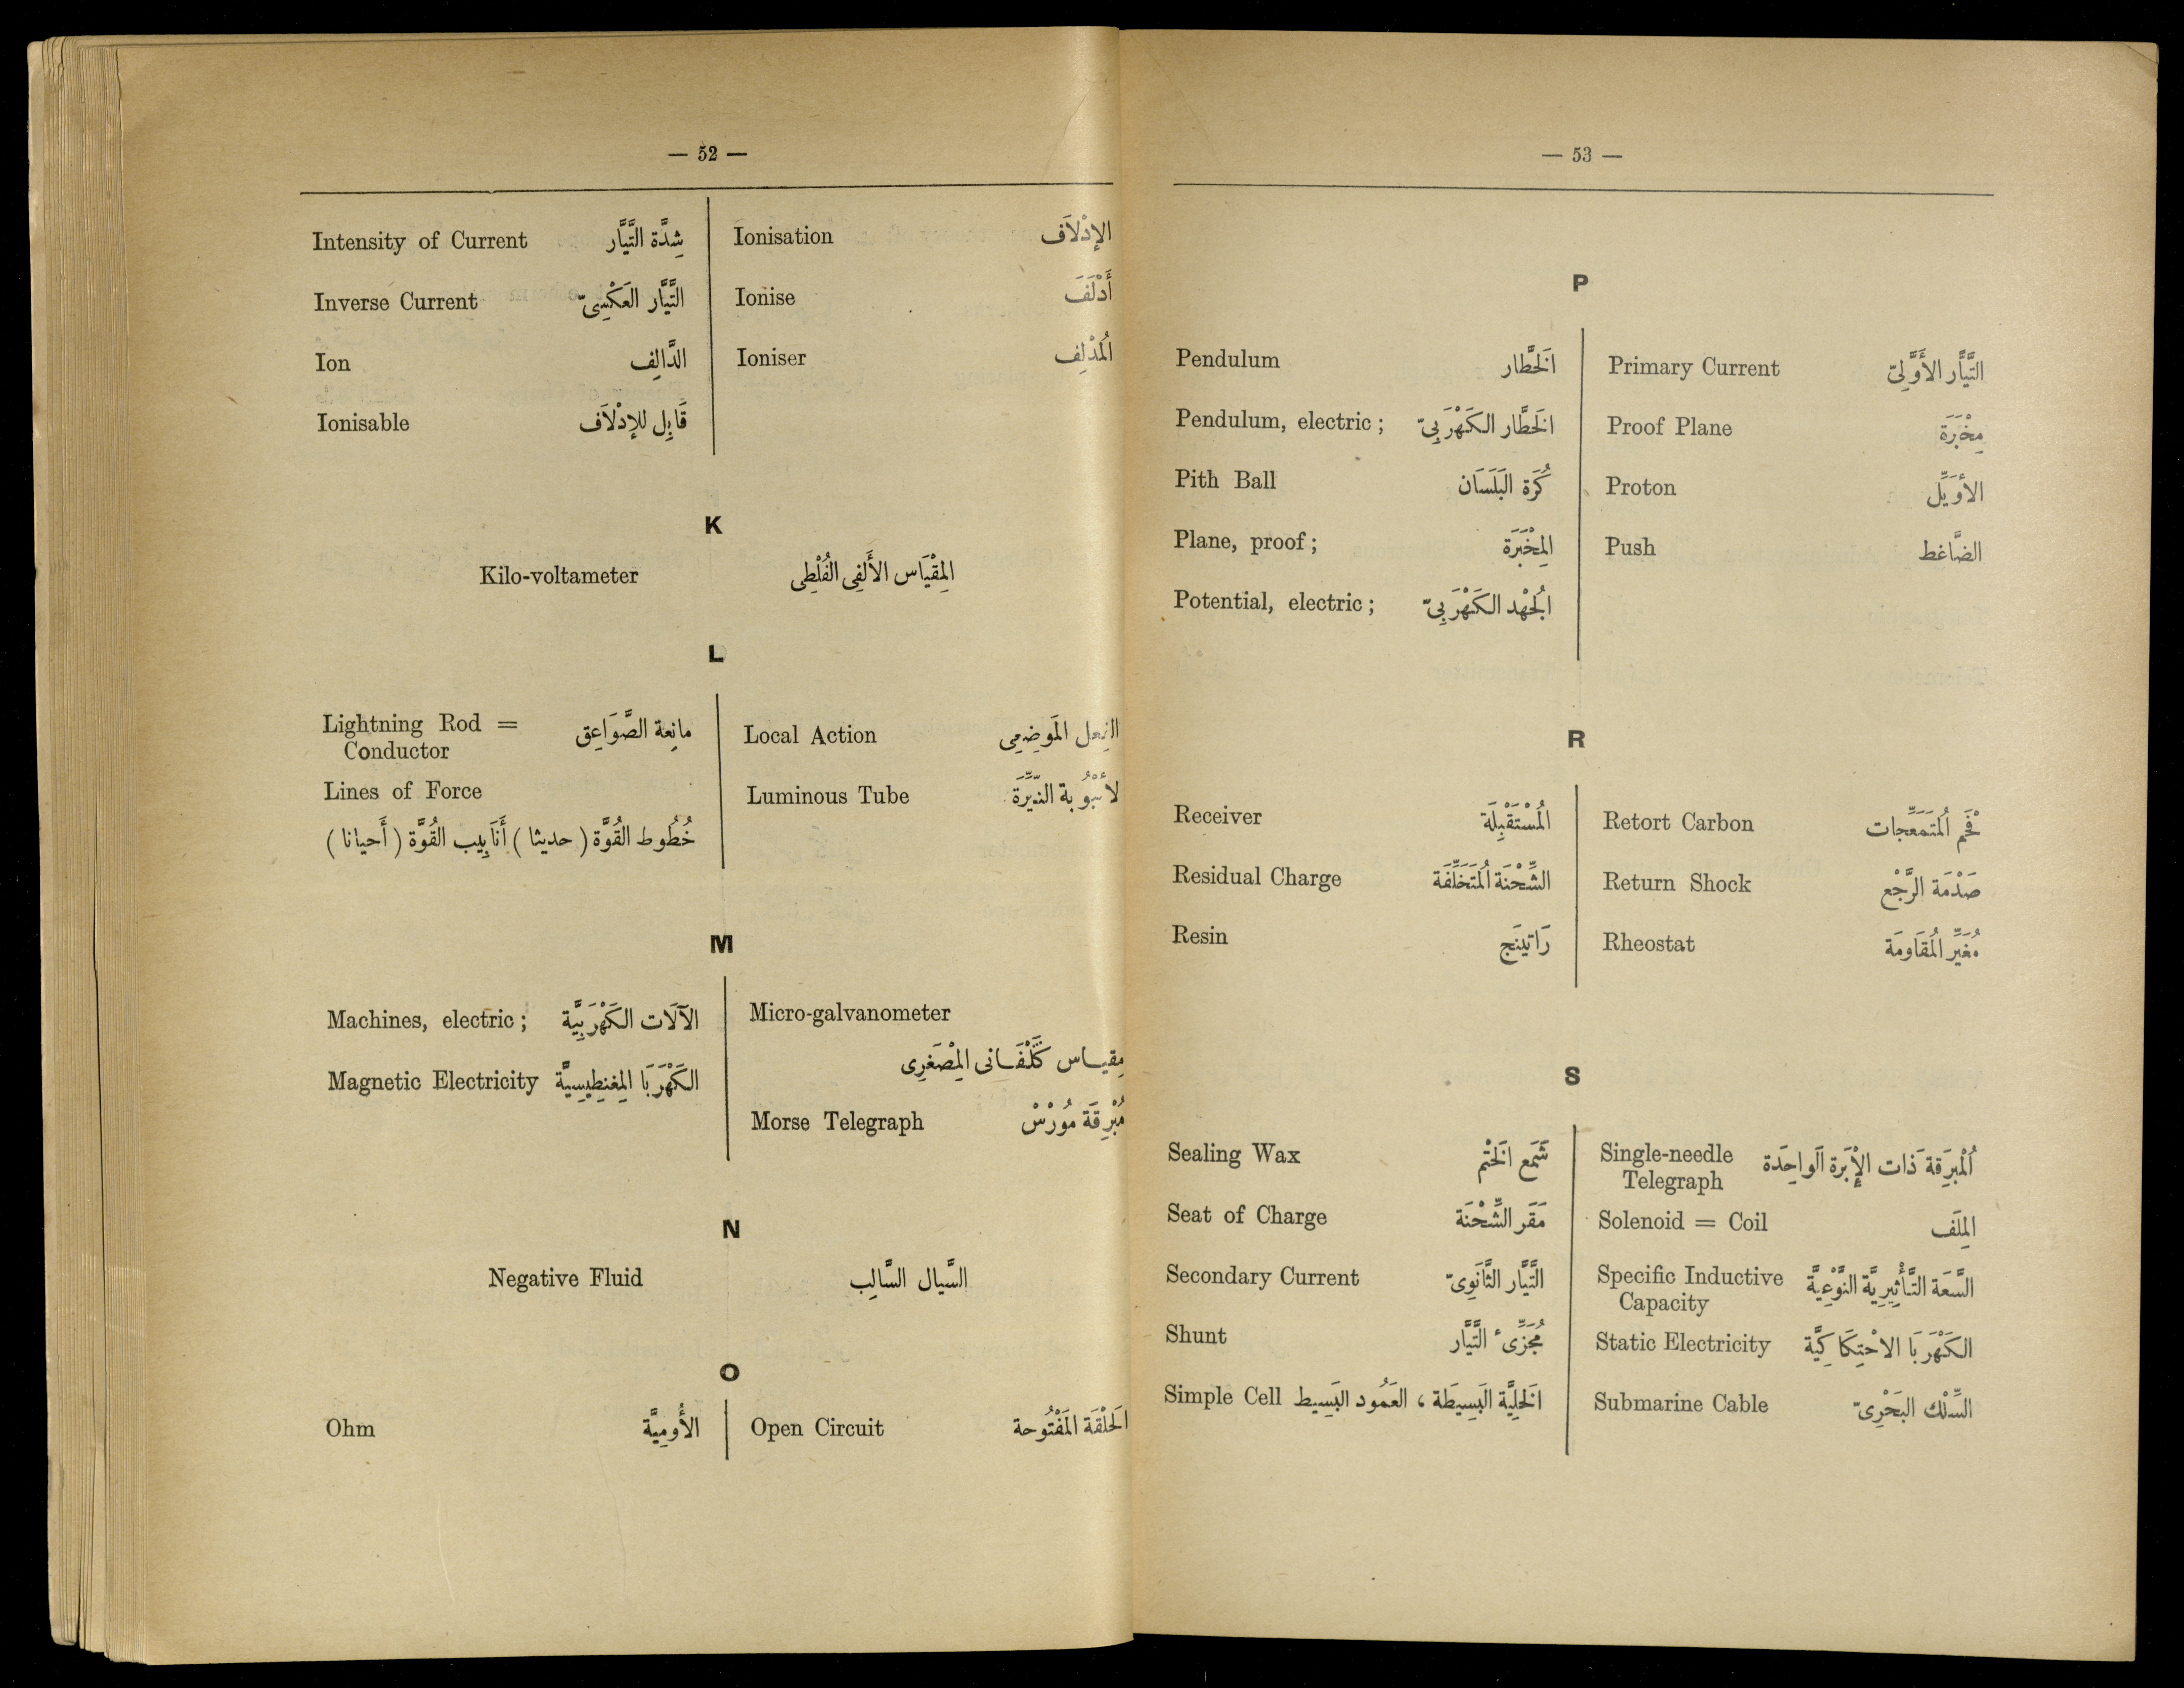 — 52 —
Intensity of Current شِدَّة التَّيَّار
Inverse Current التَّيَّار العَكْسِىّ
Ion الدَّالِف
Ionisable قَابِل للإدْلاَف
Ionisation الإدْلاَف
Ionise أَدْلَفَ
Ioniser المُدْلِف
K
Kilo-voltameter المِقْيَاس الأَلفِى الفُلْطِى
L
Lightning Rod = مانِعة الصَّوَاعِق
Conductor
Lines of Force
خُطُوط القُوَّة ( حديثا ) أَنَابِيب القُوَّة ( أَحيانا )
Local Action الفِعل المَوضِعِى
Luminous Tube لأُنْبُوبة النَّيِّرَة
M
Machines, electric ; الآلَات الكَهْرَبِيَّة
Magnetic Electricity الكَهْرَبَا المِغنِطِيسِيَّة
Micro-galvanometer
مِقيـاس كَلْفَـانى المِصْغَرِى
Morse Telegraph مُبْرِقَة مُورْسْ
N
Negative Fluid السَّيال السَّالِب
O
Ohm الأُومِيَّة
Open Circuit الحَلْقَة المَفْتُوحة
— 53 —
P
Pendulum الخَطَّار
Pendulum, electric ; الخَطَّار الكَهْرَبِىّ
Pith Ball كُرَة البَلَسَان
Plane, proof ; المِخْبَرَة
Potential, electric ; الجُهْد الكَهْرَبِىّ
Primary Current التَّيَّار الأَوَّلِىّ
Proof Plane مِخْبَرَة
Proton الأوَيِّل
Push الضَّاغط
R
Receiver المُسْتَقْبِلَة
Residual Charge الشِّحْنَة المُتَخَلِّفَة
Resin رَاتينَج
Retort Carbon فَحْم المُتَمَعِّجات
Return Shock صَدْمَة الرَّجْع
Rheostat مُغَيِّر المُقَاوَمَة
S
Sealing Wax شَمْع الخَتْم
Seat of Charge مَقَر الشِّحْنَة
Secondary Current التَّيَّار الثَّانَوِىّ
Shunt مُجَزِّىء التَّيَّار
Simple Cell الخَلِيَّة البَسِيطَة ، العَمُود البَسِيط
Single-needle المُبْرِقة ذَات الإِبْرة الوَاحِدَة
Telegraph
Solenoid = Coil المِلَف
Specific Inductive السَّعَة التَّأْثِيرِيَّة النَّوْعِيَّة
Capacity
Static Electricity الكَهْرَبَا الاحْتِكَاكِيَّة
Submarine Cable السِّلْك البَحْرِىّ